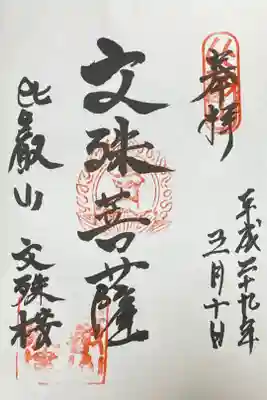 奉拝
平成二十九年
五月十日
文殊菩薩
比叡山
文殊楼